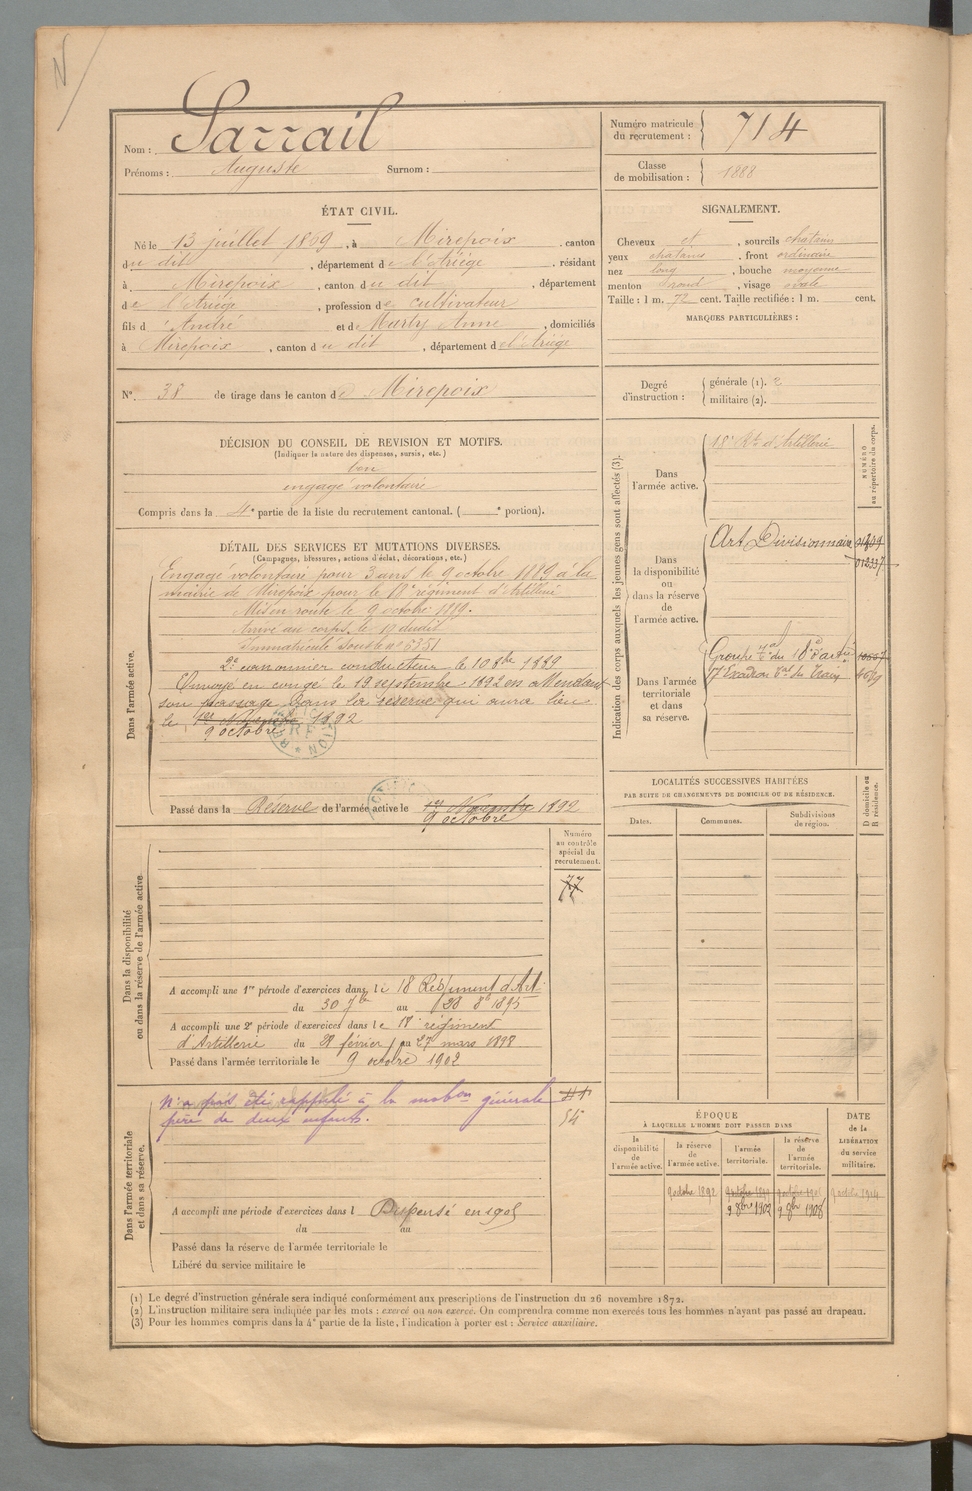 N
Nom : Sarrail
Prénoms : Auguste Surnom :
Numéro matricule du recrutement : 714
Classe de mobilisation : 1888
ÉTAT CIVIL.
Né le 13 juillet 1869, à Mirepoix, canton
du dit, département de l'Ariège, résidant
à Mirepoix, canton du dit, département
de l'Ariège, profession de cultivateur
fils d'André et de Marty Anne, domiciliés
à Mirepoix, canton du dit, département de l'Ariège
N° 38 de tirage dans le canton de Mirepoix
SIGNALEMENT.
Cheveux et, sourcils chatains
yeux chatains, front ordinaire
nez long, bouche moyenne
menton rond, visage ovale
Taille : 1 m. 72 cent. Taille rectifiée : 1 m. cent.
MARQUES PARTICULIÈRES :
Degré d'instruction :
générale (1). 2
militaire (2).
DÉCISION DU CONSEIL DE REVISION ET MOTIFS.
(Indiquer la nature des dispenses, sursis, etc.)
bon
engagé volontaire
Compris dans la 4e partie de la liste du recrutement cantonal. ( e portion).
DÉTAIL DES SERVICES ET MUTATIONS DIVERSES.
(Campagnes, blessures, actions d'éclat, décorations, etc.)
Dans l'armée active.
Engagé volontaire pour 3 ans le 9 octobre 1889 à la
mairie de Mirepoix pour le 18e régiment d'Artillerie
Mis en route le 9 octobre 1889.
Arrivé au corps le 10 dudit
Immatriculé sous le n° 6351
2e canonnier conducteur le 10 8bre 1889
Envoyé en congé le 19 septembre 1892 en attendant
son passage dans la réserve qui aura lieu
le 1er Novembre 1892
9 octobre
Passé dans la Réserve de l'armée active le 1er Novembre 1892
9 octobre
Indication des corps auxquels les jeunes gens sont affectés (3).
NUMÉRO au répertoire du corps.
Dans l'armée active.
18e Rt d'Artillerie
Dans la disponibilité ou dans la réserve de l'armée active.
Art Divisionnaire
Dans l'armée territoriale et dans sa réserve.
Groupe tal du 18e d'artie
17 Escadron tal du Train
LOCALITÉS SUCCESSIVES HABITÉES
PAR SUITE DE CHANGEMENTS DE DOMICILE OU DE RÉSIDENCE.
Dates. Communes. Subdivisions de région. D domicile ou R résidence.
Dans la disponibilité ou dans la réserve de l'armée active.
Numéro au contrôle spécial du recrutement.
77
A accompli une 1re période d'exercices dans le 18 Régiment d'Art
du 30 7bre au 28 8bre 1895
A accompli une 2e période d'exercices dans le 18e régiment
d'Artillerie du 28 février au 27 mars 1898
Passé dans l'armée territoriale le 9 octobre 1902
Dans l'armée territoriale et dans sa réserve.
N'a pas été rappelé à la mobon générale
père de deux enfants.
A accompli une période d'exercices dans l Dispensé en 1908
du au
Passé dans la réserve de l'armée territoriale le
Libéré du service militaire le
ÉPOQUE
À LAQUELLE L'HOMME DOIT PASSER DANS
la disponibilité de l'armée active.
la réserve de l'armée active.
l'armée territoriale.
la réserve de l'armée territoriale.
DATE de la LIBÉRATION du service militaire.
9 octobre 1892
9 8bre 1902
9 8bre 1908
9 octobre 1914
(1) Le degré d'instruction générale sera indiqué conformément aux prescriptions de l'instruction du 26 novembre 1872.
(2) L'instruction militaire sera indiquée par les mots : exercé ou non exercé. On comprendra comme non exercés tous les hommes n'ayant pas passé au drapeau.
(3) Pour les hommes compris dans la 4e partie de la liste, l'indication à porter est : Service auxiliaire.